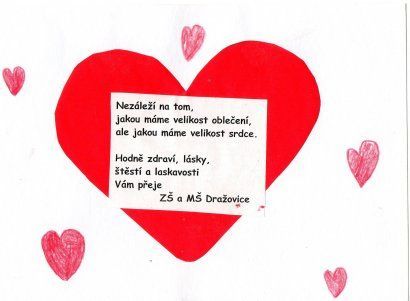 Nezáleží na tom,
jakou máme velikost oblečení,
ale jakou máme velikost srdce.
Hodně zdraví, lásky,
štěstí a laskavosti
Vám přeje
ZŠ a MŠ Dražovice